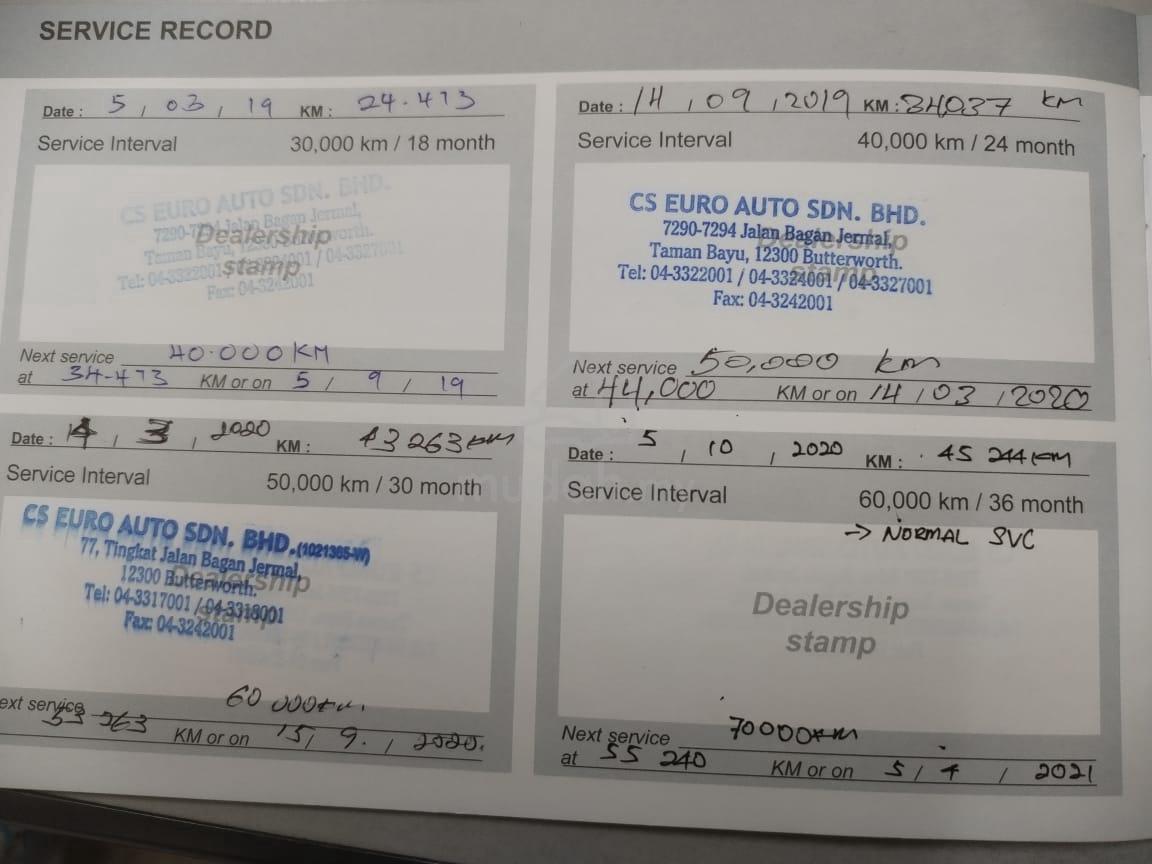 SERVICE RECORD
Date : 5 / 03 / 19 KM : 24.473
Service Interval 30,000 km / 18 month
CS EURO AUTO SDN. BHD.
7290-7294 Jalan Bagan Jermal,
Taman Bayu, 12300 Butterworth.
Tel: 04-3322001 / 04-3324001 / 04-3327001
Fax: 04-3242001
Dealership
stamp
Next service 40.000 KM
at 34-473 KM or on 5 / 9 / 19
Date : 14 / 09 / 2019 KM : 34037 km
Service Interval 40,000 km / 24 month
CS EURO AUTO SDN. BHD.
7290-7294 Jalan Bagan Jermal,
Taman Bayu, 12300 Butterworth.
Tel: 04-3322001 / 04-3324001 / 04-3327001
Fax: 04-3242001
Dealership
stamp
Next service 50,000 km
at 44,000 KM or on 14 / 03 / 2020
Date : 4 / 3 / 2020 KM : 43263 km
Service Interval 50,000 km / 30 month
CS EURO AUTO SDN. BHD.(1021365-W)
77, Tingkat Jalan Bagan Jermal,
12300 Butterworth.
Tel: 04-3317001 / 04-3318001
Fax: 04-3242001
Dealership
stamp
ext service 60 000km.
53 263 KM or on 15 / 9. / 2020.
Date : 5 / 10 / 2020 KM : 45 244 KM
Service Interval 60,000 km / 36 month
→ NORMAL SVC
Dealership
stamp
Next service 70000KM
at 55 240 KM or on 5 / 4 / 2021
mudah.my